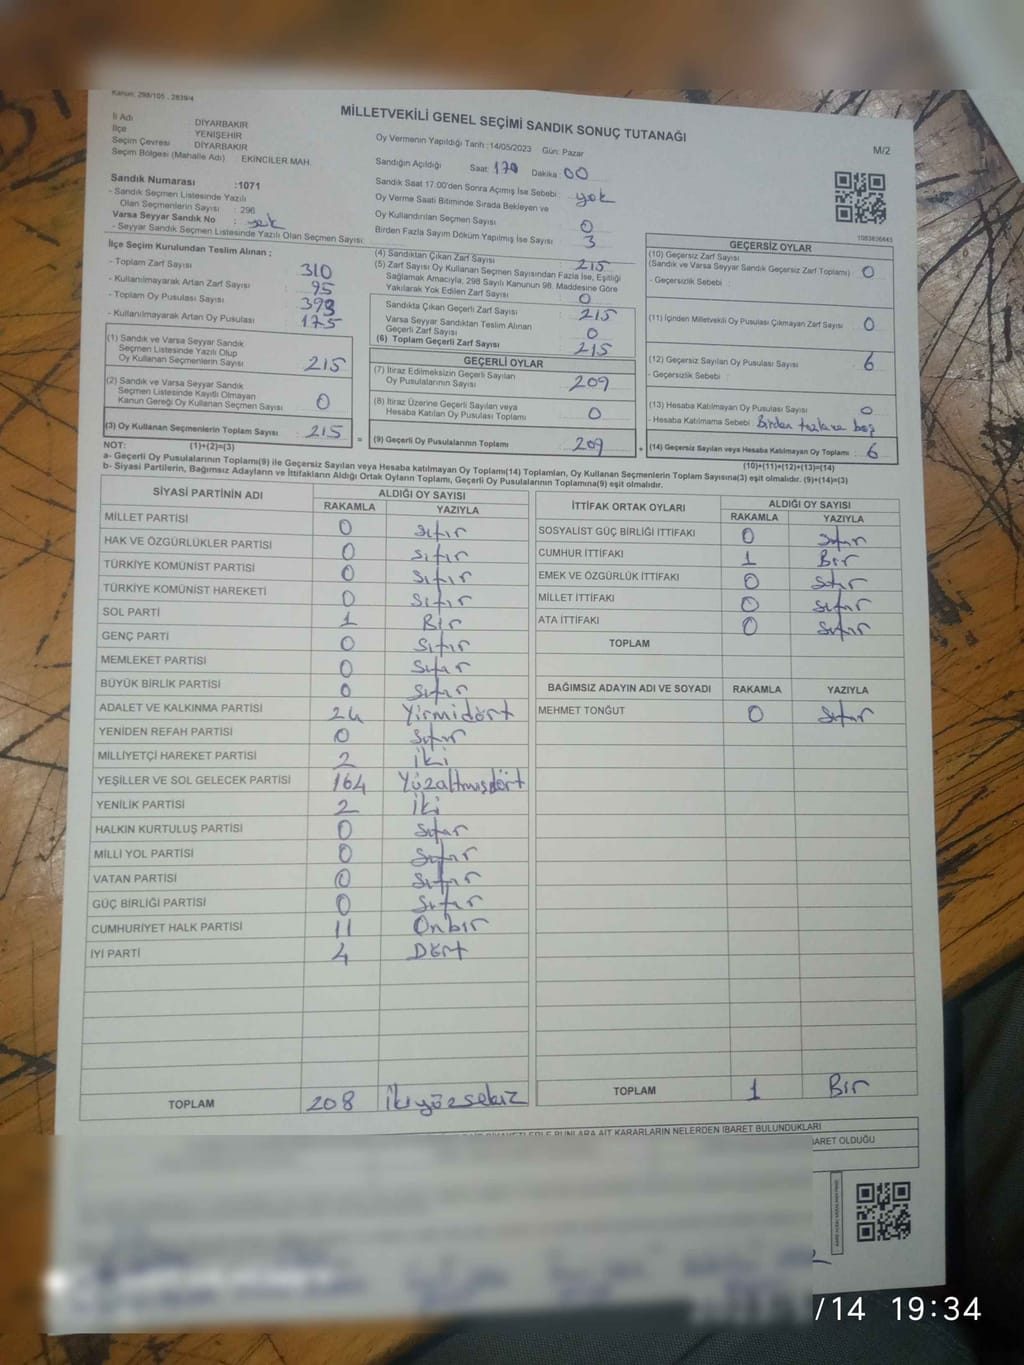 Kanun: 298/105 , 2839/4
MİLLETVEKİLİ GENEL SEÇİMİ SANDIK SONUÇ TUTANAĞI
M/2
İl Adı : DİYARBAKIR
İlçe : YENİŞEHİR
Seçim Çevresi : DİYARBAKIR
Seçim Bölgesi (Mahalle Adı) EKİNCİLER MAH.
Sandık Numarası :1071
- Sandık Seçmen Listesinde Yazılı
Olan Seçmenlerin Sayısı : 296
Varsa Seyyar Sandık No : yok
- Seyyar Sandık Seçmen Listesinde Yazılı Olan Seçmen Sayısı:
Oy Vermenin Yapıldığı Tarih :14/05/2023 Gün: Pazar
Sandığın Açıldığı Saat: Dakika: 00
Sandık Saat 17.00'den Sonra Açımış İse Sebebi : yok
Oy Verme Saati Bitiminde Sırada Bekleyen ve
Oy Kullandırılan Seçmen Sayısı 0
Birden Fazla Sayım Döküm Yapılmış İse Sayısı 3
1083636645
İlçe Seçim Kurulundan Teslim Alınan ;
- Toplam Zarf Sayısı : 310
- Kullanılmayarak Artan Zarf Sayısı : 95
- Toplam Oy Pusulası Sayısı : 393
- Kullanılmayarak Artan Oy Pusulası : 175
(1) Sandık ve Varsa Seyyar Sandık
Seçmen Listesinde Yazılı Olup
Oy Kullanan Seçmenlerin Sayısı : 215
(2) Sandık ve Varsa Seyyar Sandık
Seçmen Listesinde Kayıtlı Olmayan
Kanun Gereği Oy Kullanan Seçmen Sayısı : 0
(3) Oy Kullanan Seçmenlerin Toplam Sayısı : 215 =
(4) Sandıktan Çıkan Zarf Sayısı : 215
(5) Zarf Sayısı Oy Kullanan Seçmen Sayısından Fazla İse, Eşitliği
Sağlamak Amacıyla, 298 Sayılı Kanunun 98. Maddesine Göre
Yakılarak Yok Edilen Zarf Sayısı : 0
Sandıkta Çıkan Geçerli Zarf Sayısı : 215
Varsa Seyyar Sandıktan Teslim Alınan
Geçerli Zarf Sayısı : 0
(6) Toplam Geçerli Zarf Sayısı : 215
GEÇERLİ OYLAR
(7) İtiraz Edilmeksizin Geçerli Sayılan
Oy Pusulalarının Sayısı : 209
(8) İtiraz Üzerine Geçerli Sayılan veya
Hesaba Katılan Oy Pusulası Toplamı : 0
(9) Geçerli Oy Pusulalarının Toplamı : 209 +
GEÇERSİZ OYLAR
(10) Geçersiz Zarf Sayısı
(Sandık ve Varsa Seyyar Sandık Geçersiz Zarf Toplamı) : 0
- Geçersiz Sebebi :
(11) İçinden Milletvekili Oy Pusulası Çıkmayan Zarf Sayısı : 0
(12) Geçersiz Sayılan Oy Pusulası Sayısı : 6
- Geçersizlik Sebebi :
(13) Hesaba Katılmayan Oy Pusulası Sayısı : 0
- Hesaba Katılmama Sebebi : Birden
(14) Geçersiz Sayılan veya Hesaba Katılmayan Oy Toplamı : 6
NOT: (1)+(2)=(3)
(10)+(11)+(12)+(13)=(14)
a- Geçerli Oy Pusulalarının Toplamı(9) ile Geçersiz Sayılan veya Hesaba katılmayan Oy Toplamı(14) Toplamları, Oy Kullanan Seçmenlerin Toplam Sayısına(3) eşit olmalıdır. (9)+(14)=(3)
b- Siyasi Partilerin, Bağımsız Adayların ve İttifakların Aldığı Ortak Oyların Toplamı, Geçerli Oy Pusulalarının Toplamına(9) eşit olmalıdır.
SİYASİ PARTİNİN ADI ALDIĞI OY SAYISI
RAKAMLA YAZIYLA
MİLLET PARTİSİ 0 sıfır
HAK VE ÖZGÜRLÜKLER PARTİSİ 0 sıfır
TÜRKİYE KOMÜNİST PARTİSİ 0 sıfır
TÜRKİYE KOMÜNİST HAREKETİ 0 sıfır
SOL PARTİ 1 Bir
GENÇ PARTİ 0 sıfır
MEMLEKET PARTİSİ 0 sıfır
BÜYÜK BİRLİK PARTİSİ 0 sıfır
ADALET VE KALKINMA PARTİSİ 24 Yirmidört
YENİDEN REFAH PARTİSİ 0 sıfır
MİLLİYETÇİ HAREKET PARTİSİ 2 İki
YEŞİLLER VE SOL GELECEK PARTİSİ 164 Yüzaltmışdört
YENİLİK PARTİSİ 2 İki
HALKIN KURTULUŞ PARTİSİ 0 sıfır
MİLLİ YOL PARTİSİ 0 sıfır
VATAN PARTİSİ 0 sıfır
GÜÇ BİRLİĞİ PARTİSİ 0 sıfır
CUMHURİYET HALK PARTİSİ 11 Onbir
İYİ PARTİ 4 Dört
TOPLAM 208 İkiyüzsekiz
İTTİFAK ORTAK OYLARI ALDIĞI OY SAYISI
RAKAMLA YAZIYLA
SOSYALİST GÜÇ BİRLİĞİ İTTİFAKI 0 sıfır
CUMHUR İTTİFAKI 1 Bir
EMEK VE ÖZGÜRLÜK İTTİFAKI 0 sıfır
MİLLET İTTİFAKI 0 sıfır
ATA İTTİFAKI 0 sıfır
TOPLAM
BAĞIMSIZ ADAYIN ADI VE SOYADI RAKAMLA YAZIYLA
MEHMET TONĞUT 0 sıfır
TOPLAM 1 Bir
BUNLARA AİT KARARLARIN NELERDEN İBARET BULUNDUKLARI
İBARET OLDUĞU
/14 19:34